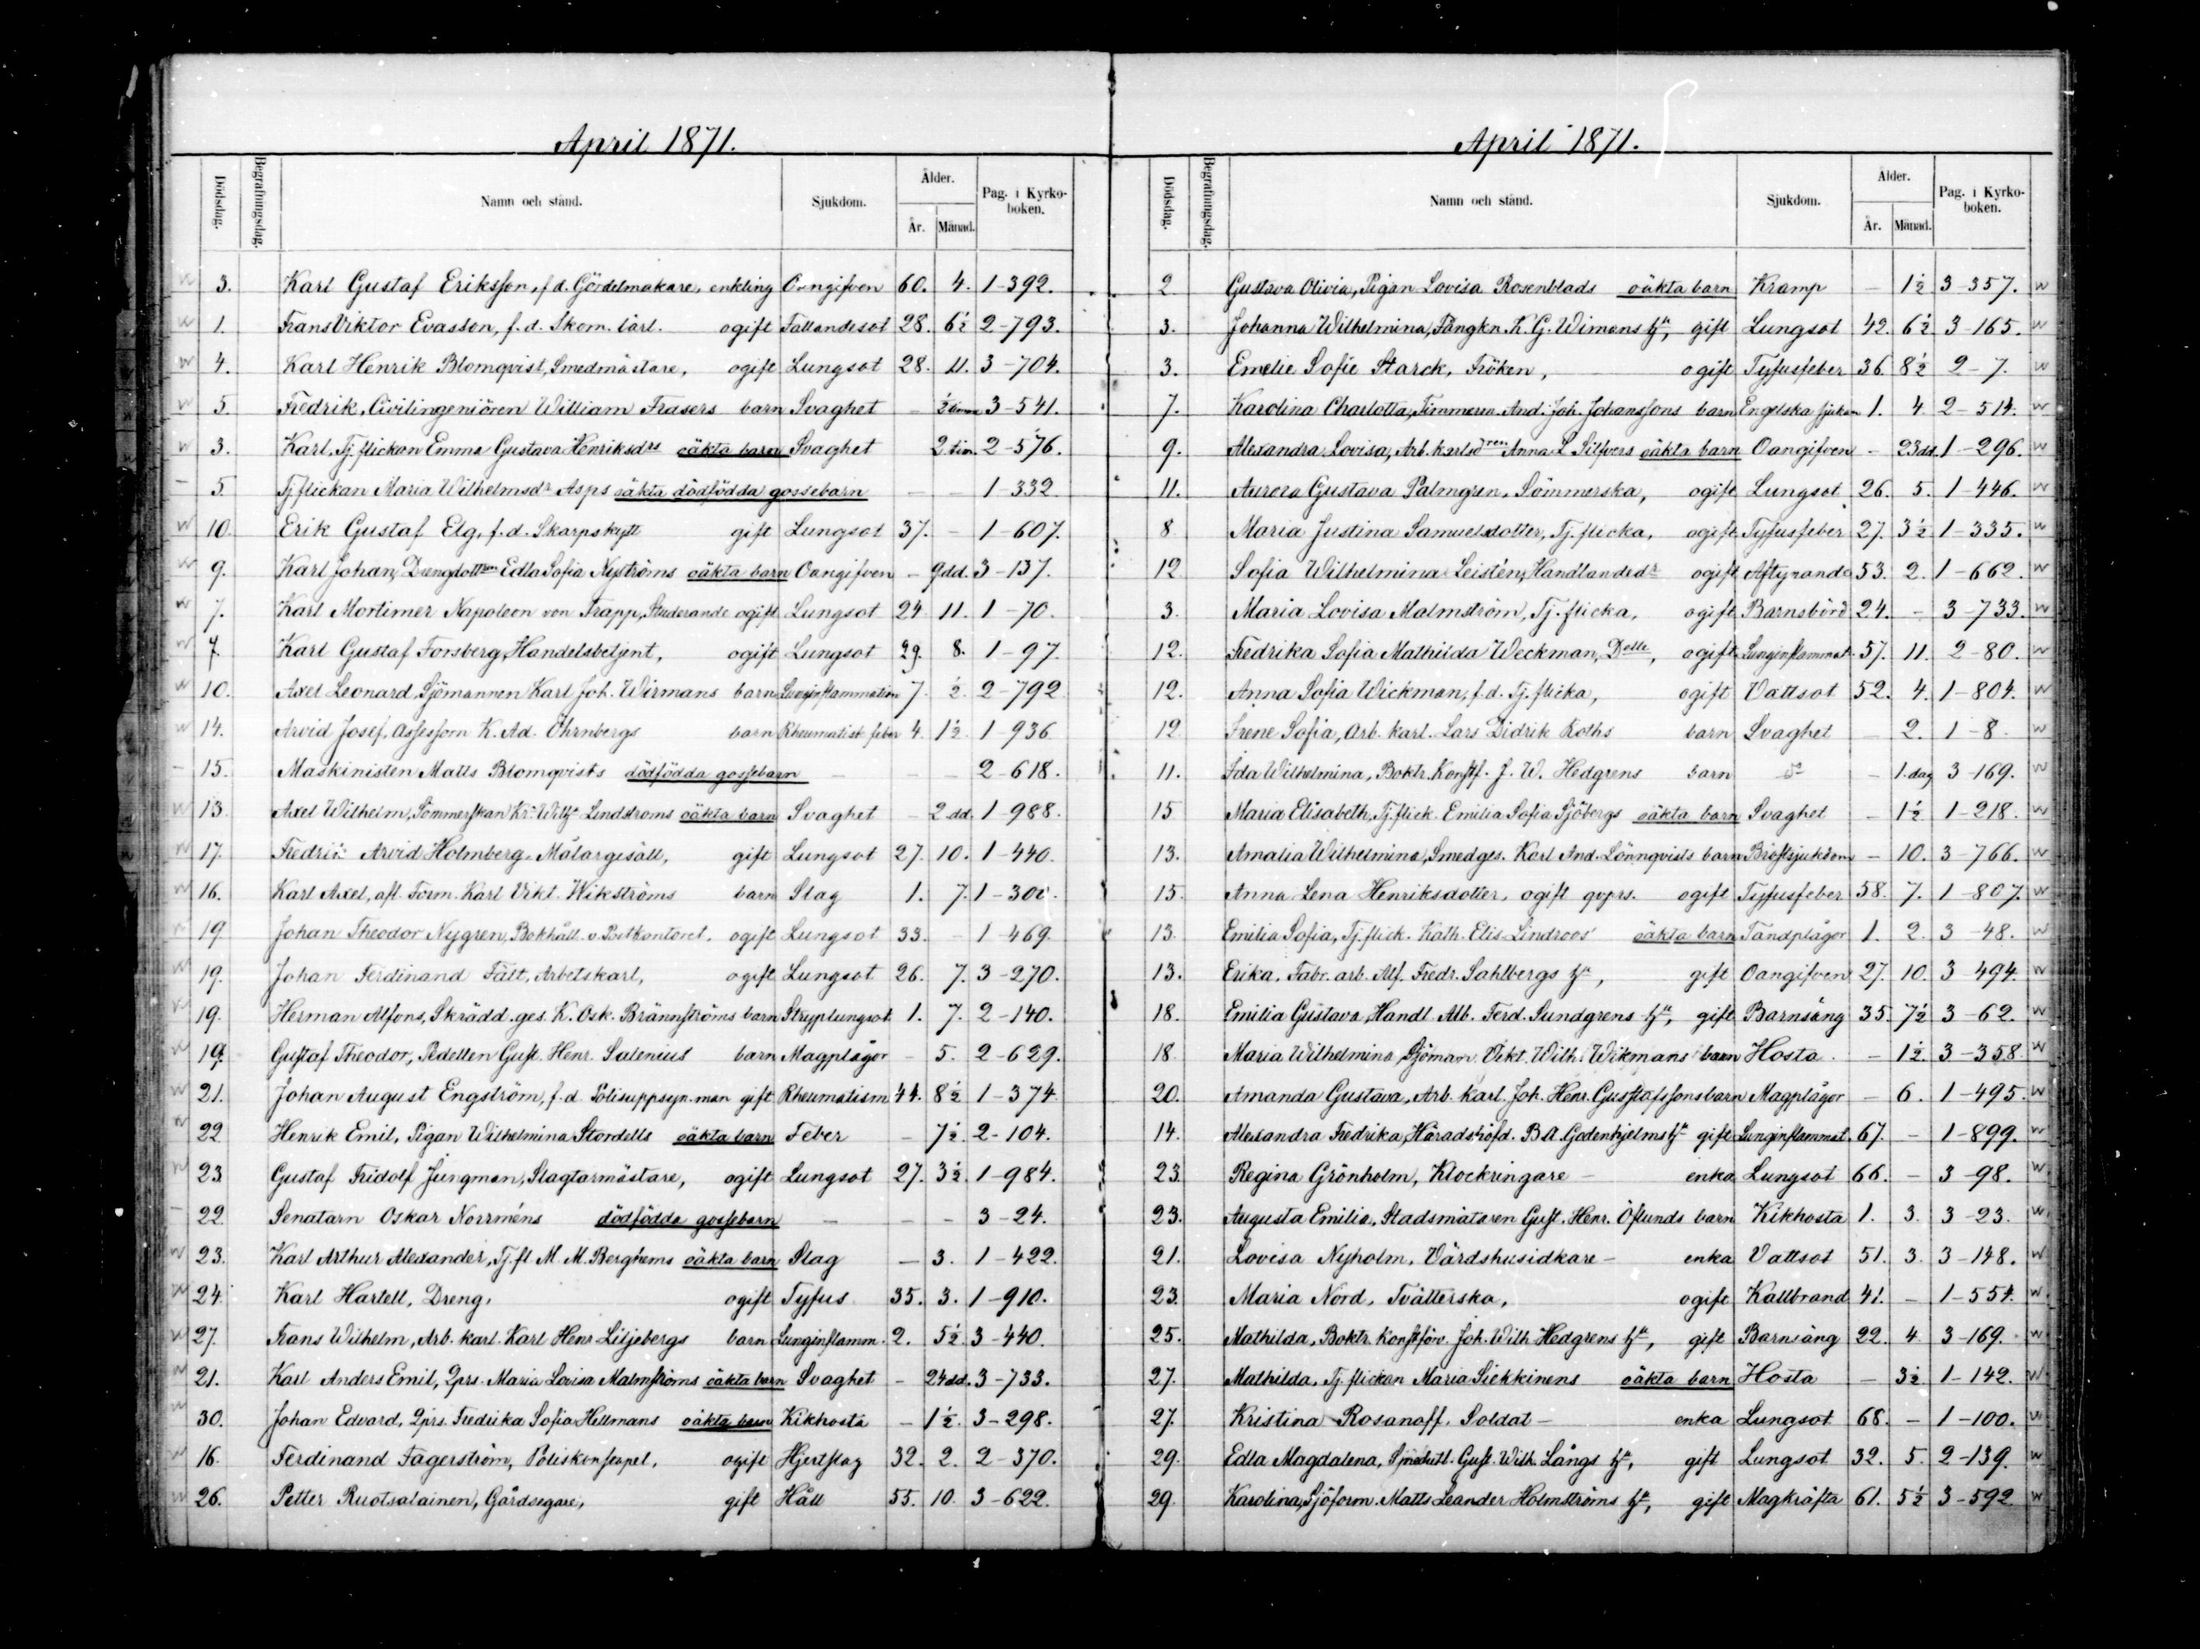 April 1871.
Dödsdag. Begrafningsdag. Namn och stånd. Sjukdom. Ålder. År. Månad. Pag. i Kyrko-boken.
3. Karl Gustaf Eriksson, f.d. Gördelmakare, enkling Oangifven 60. 4. 1-392.
1. Frans Viktor Evasson, f.d. Skom. lärl. ogift Fallandesot 28. 6½ 2-793.
4. Karl Henrik Blomqvist, Smedmästare, ogift Lungsot 28. 11. 3-704.
5. Fredrik, Civilingeniören William Frasers barn Svaghet - ½ timm. 3-541.
3. Karl, Tj. flickan Emma Gustava Henriksdrs oäkta barn Svaghet 2 tim. 2-576.
5. Tj flickan Maria Wilhelmsdr Asps oäkta dödfödda gossebarn - - 1-332
10. Erik Gustaf Elg, f.d. Skarpskytt gift Lungsot 37. - 1-607.
9. Karl Johan, Drengdottren Edla Sofia Nyströms oäkta barn Oangifven - 9 dd. 3-137.
7. Karl Mortimer Napoleon von Trapp, Studerande ogift Lungsot 24. 11. 1-70.
7. Karl Gustaf Forsberg, Handelsbetjent, ogift Lungsot 29. 8. 1-97.
10. Axel Leonard, Sjömannen Karl Joh. Wirmans barn Lunginflammation 7. ½. 2-792
14. Arvid Josef, Assessorn K. Ad. Öhrnbergs barn Rheumatisk feber 4. 1½ 1-936
15. Maskinisten Matts Blomqvists dödfödda gossebarn - - - 2-618.
13. Axel Wilhelm, Sömmerskan Kr. Wilh. Lindstroms oäkta barn Svaghet - 2 dd. 1-988.
17. Fredrik Arvid Holmberg, Målargesäll, gift Lungsot 27. 10. 1-440.
16. Karl Axel, afl. Form. Karl Vikt. Wikströms barn Slag 1. 7. 1-300.
19. Johan Theodor Nygren, Bokhåll. v. Postkontoret, ogift Lungsot 33. - 1-469.
19. Johan Ferdinand Fält, Arbetskarl, ogift Lungsot 26. 7. 3-270.
19. Herman Alfons, Skrädd. ges. K. Osk. Brännströms barn Stryplungsot 1. 7. 2-140.
19. Gustaf Theodor, Pedellen Gust. Henr. Salenius barn Magplågor - 5. 2-629.
21. Johan August Engström, f.d. Polisuppsyn.man gift Rheumatism 44. 8½ 1-374.
22. Henrik Emil, Pigan Wilhelmina Stordells oäkta barn Feber - 7½. 2-104.
23. Gustaf Fridolf Jungman, Slagtarmästare, ogift Lungsot 27. 3½. 1-984.
22. Senatorn Oskar Norrméns dödfödda gossebarn - - - 3-24.
23. Karl Arthur Alexander, Tj. fl. M. M. Berghems oäkta barn Slag - 3. 1-422.
24. Karl Hartell, Dreng, ogift Tyfus 35. 3. 1-910.
27. Frans Wilhelm, Arb. karl. Karl Henr Liljebergs barn Lunginflamm. 2. 5½ 3-440.
21. Karl Anders Emil, Qprs. Maria Lovisa Malmströms oäkta barn Svaghet - 24 dd. 3-733.
30. Johan Edvard, Qprs. Fredrika Sofia Hellmans oäkta barn Kikhosta - 1½. 3-298.
16. Ferdinand Fagerström, Poliskonstapel, ogift Hjertslag 32. 2. 2-370.
26. Petter Ruotsalainen, Gårdsegare, gift Håll 55. 10. 3-622.
April 1871.
Dödsdag. Begrafningsdag. Namn och stånd. Sjukdom. Ålder. År. Månad. Pag. i Kyrko-boken.
2. Gustava Olivia, Pigan Lovisa Rosenblads oäkta barn Kramp - 1½ 3-357.
3. Johanna Wilhelmina, Fångkn. K. G. Wimans hu, gift Lungsot 42. 6½ 3-165.
3. Emelie Sofie Starck, Fröken, ogift Tyfusfeber 36. 8½ 2-7.
7. Karolina Charlotta, Timmerm. And. Joh. Johanssons barn Engelska sjukan 1. 4. 2-514.
9. Alexandra Lovisa, Arb. karlsdren Anna L Silfvers oäkta barn Oangifven - 23 dd. 1-296.
11. Aurora Gustava Palmgren, Sömmerska, ogift Lungsot 26. 5. 1-446.
8. Maria Justina Samuelsdotter, Tj. flicka, ogift Tyfusfeber 27. 3½ 1-335.
12. Sofia Wilhelmina Leistén, Handlandedr ogift Aftynande 53. 2. 1-662.
3. Maria Lovisa Malmström, Tj. flicka, ogift Barnsbörd 24. - 3-733.
12. Fredrika Sofia Mathilda Weckman, Delle, ogift Lunginflammat. 57. 11. 2-80.
12. Anna Sofia Wickman, f.d. Tj. flicka, ogift Vattsot 52. 4. 1-804.
12. Irene Sofia, Arb. karl. Lars Didrik Roths barn Svaghet - 2. 1-8.
11. Ida Wilhelmina, Boktr. Konstf. J. W. Hedgrens barn do - 1 dag 3-169.
15. Maria Elisabeth, Tj. flick. Emilia Sofia Sjöbergs oäkta barn Svaghet - 1½ 1-218.
13. Amalia Wilhelmina, Smedges. Karl And. Lönnqvists barn Bröstsjukdom - 10. 3-766.
15. Anna Lena Henriksdotter, ogift qvprs. ogift Tyfusfeber 58. 7. 1-807.
13. Emilia Sofia, Tj. flick. Kath. Elis Lindroos' oäkta barn Tandplågor 1. 2. 3-48.
13. Erika, Fabr. arb. Alf. Fredr. Sahlbergs hu, gift Oangifven 27. 10. 3-494.
18. Emilia Gustava, Handl. Alb. Ferd. Sundgrens hu, gift Barnsäng 35. 7½ 3-62.
18. Maria Wilhelmina, Sjöman. Vikt. Wilh. Wikmans barn Hosta. - 1½. 3-358.
20. Amanda Gustava, Arb. karl. Joh. Henr. Gustafssons barn Magplågor - 6. 1-495.
14. Alexandra Fredrika, Häradshöfd. B. A. Godenhjelms hu gift Lunginflammat. 67. - 1-899.
23. Regina Grönholm, Klockringare- enka Lungsot 66. - 3-98.
23. Augusta Emilia, Stadsmätaren Gust. Henr. Öflunds barn Kikhosta 1. 3. 3-23.
21. Lovisa Nyholm, Värdshusidkare- enka Vattsot 51. 3. 3-148.
23. Maria Nord, Tvätterska, ogift Kallbrand 41. - 1-554.
25. Mathilda, Boktr. Konstförv. Joh. Wilh Hedgrens hu, gift Barnsäng 22. 4. 3-169.
27. Mathilda, Tj. flickan Maria Siekkinens oäkta barn Hosta - 3½ 1-142.
27. Kristina Rosanoff, Soldat- enka Lungsot 68. - 1-100.
29. Edla Magdalena, Gust. Wilh. Långs hu, gift Lungsot 32. 5. 2-139.
29. Karolina, Sjöform. Matts Leander Holmströms hu, gift Magkräfta 61. 5½ 3-592.